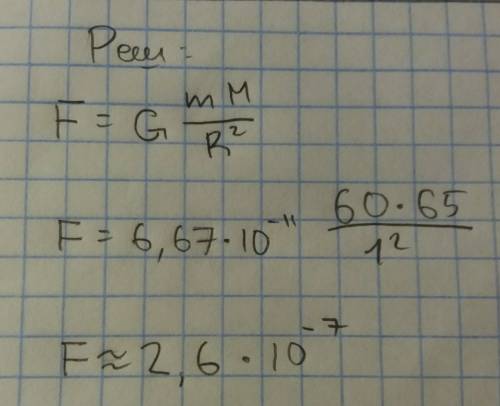 Реш:
F = G mM/R²
F = 6,67·10⁻¹¹ 60·65/1²
F ≈ 2,6·10⁻⁷